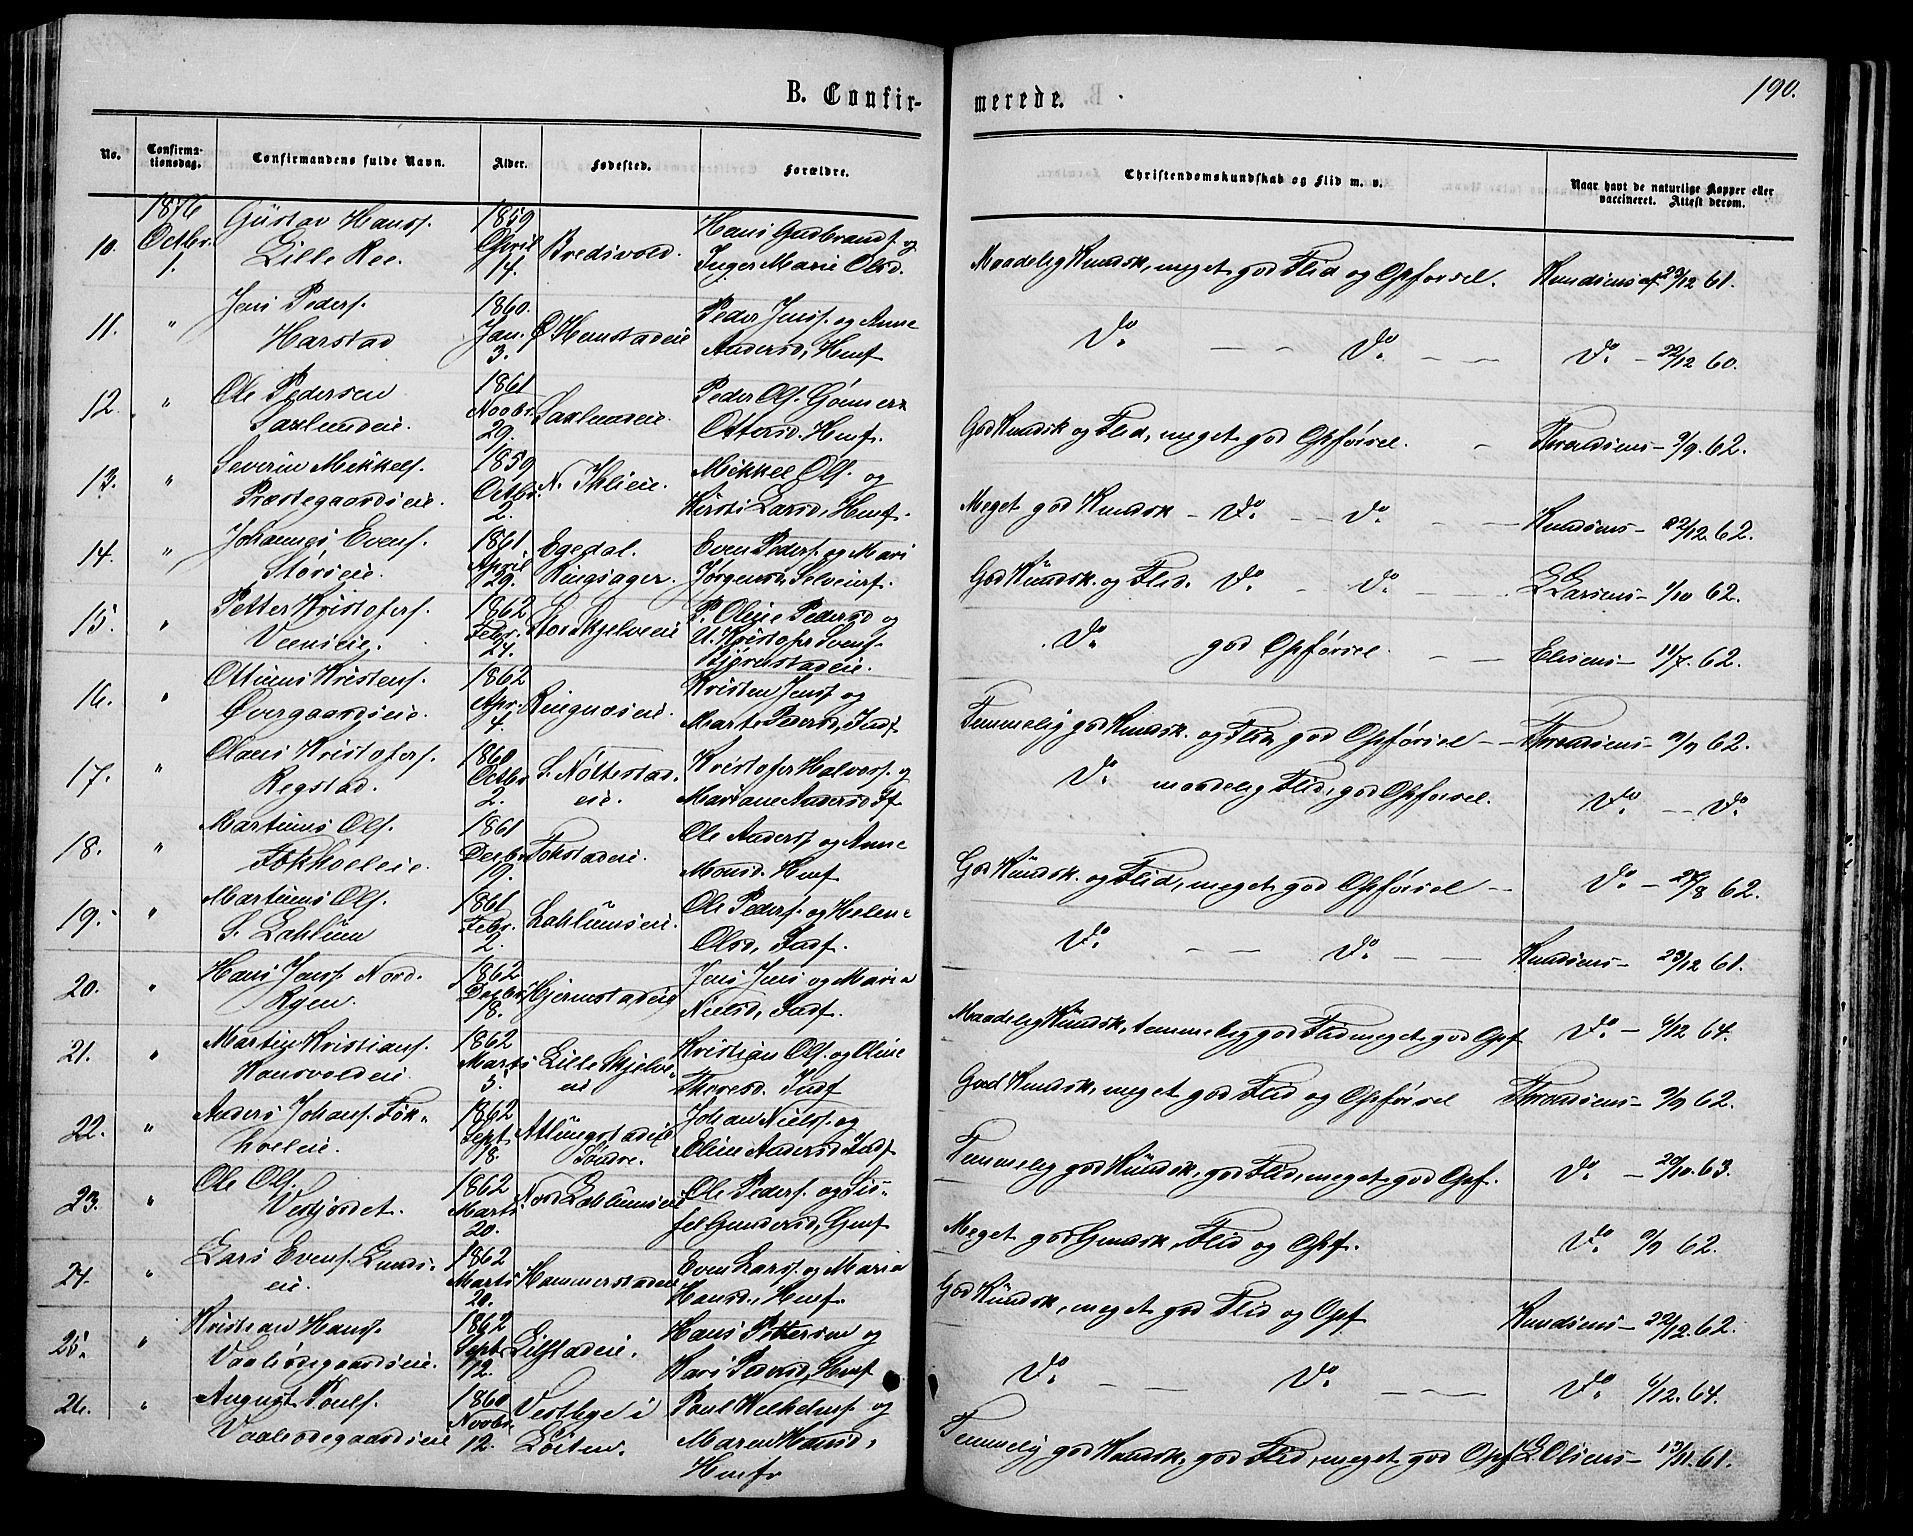 190.
B. Confir-
merede.
No.
Confirma-
tionsdag.
Confirmandens fulde Navn.
Alder.
Fødested.
Forældre.
Christendomskundskab og Flid m. v.
Naar havt de naturlige Kopper eller
vaccineret. Attest derom.
1876
Octbr.
1.
10.
Gustav Hanss.
Lille Roe.
1859
April
14.
Bredsvold.
Hans Gudbrands. og
Inger Marie Olsd.
Maadelig Kundsk., meget god Flid og Opførsel.
Knudsens af 23/12 61.
11. "
Jens Peders.
Harstad
1860.
Jan.
3.
Ø. Hemstadeie
Peder Jenss. og Anne
Andersd., Hmf.
Do. — — Do. — —
Do. — 22/12 60.
12. "
Ole Pedersen
Saxlundeie.
1861
Novbr.
29.
Saxlundeie.
Peder Ols. Gønner
Ottersd. Hmf.
God Kundsk. og Flid, meget god Opførsel. —
Throndsens — 9/9. 62.
13. "
Severin Mikkels.
Præstegaardseie.
1859
Octbr.
2.
N. Ihlieie.
Mikkel Ols. og
Kirsti Larsd., Hmf.
Meget god Kundsk — Do. — — Do. — —
Knudsens — 22/12. 62.
14. "
Johannes Evens.
Størseie.
1861
April
29.
Egedal.
Ringsager.
Even Peders. og Mari
Jørgensd., Selveierf.
God Kundsk. og Flid. Do. — Do. — —
L Larsens — 1/10 62.
15. "
Petter Kristofers.
Veenseie.
1862
Febr.
24.
Storskjelveeie
P. Oleie Pedersd og
U. Kristofer Svens.
Bjørnstadeie.
Do. god Opførsel. — —
Elisens — 11/7. 62.
16. "
Ottinus Kristens.
Øvergaardseie.
1862
Apr.
4.
Ringnæseie.
Kristen Jens. og
Marte Pedersd., Indf
Temmelig god Kundsk. og Flid, god Opførsel —
Throndsens — 9/9 62.
17. "
Olaus Kristofers.
Regstad.
1860
Octbr.
2.
S. Nøttestad.
eie.
Kristofer Halvors. og
Mariane Andersd If
Do. maadelig Flid, god Opførsel.
Do. — — Do.
18. "
Martinus Ols.
Fokhoeleie.
1861
Decbr.
19.
Tokstadeie.
Ole Anders. og Anne
Monsd. Hmf
God Kundsk. og Flid, meget god Opførsel —
Do. — 26/8 62.
19. "
Martinus Ols.
S. Lahlum
1861
Febr.
2.
Lahlumseie.
Ole Peders. og Helene
Olsd., Indf.
Do. — — Do. — —
Knudsens — 23/12 61.
20. "
Hans Jens. Nord.
Ryen.
1862
Decbr.
18.
Hjermstadeie
Jens Jens og Maria
Nielsd., Indf.
Maadelig Kundsk., temmelig god Flid meget god Opf
Do. — 6/12 64.
21. "
Martin Kristians.
Kausvoldeie
1862
Marts
5.
Lille Skjelve-
eie
Kristian Ols. og Oline
Thoresd. Indf
God Kundsk., meget god Flid og Opførsel
Throndsens — 9/9 62.
22. "
Anders Johans. Fok-
hoeleie.
1862
Sept.
18.
Atlungstadeie
Søndre.
Johan Niels. og
Eline Andersd Indf
Temmelig god Kundsk., god Flid, meget god Opf.
Do. — 20/10. 63.
23. "
Ole Ols.
Vesljordet.
1862
Marts.
20.
Nord Lahlumseie
Ole Peders. og Sis-
sel Gundersd, Gmf
Meget god Kundsk, Flid og Opf.
Do. 9/9 62.
24. "
Lars Evens. Lunds-
eie.
1862
Marts
20.
Hammerstadeie
Even Lars. og Maria
Hansd., Hmf.
God Kundsk, meget god Flid og Opf
Knudsens — 22/12. 62.
25. "
Kristian Hans.
Vaalsødegaardseie.
1862
Sept.
12.
Lilstadeie.
Hans Pettersen og
Kari Pedersd, Hmf
Do. — — Do. — —
Do. 6/12. 64.
26. "
August Pouls.
Vaalsødegaardseie
1860
Novbr.
12.
Vestbye i
Løiten.
Poul Wilhelms. og
Maren Hansd.,
Hmf
Temmelig god Kundsk., god Flid, meget god Opf.
L Olsens — 13/11. 61.